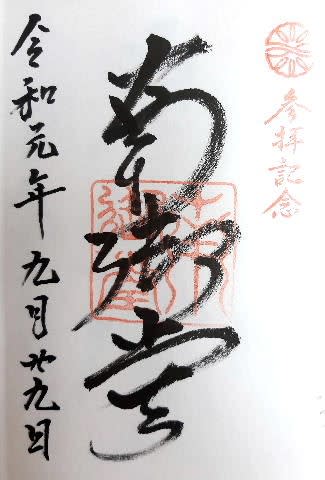 参拝記念
南御堂
令和元年九月廿九日